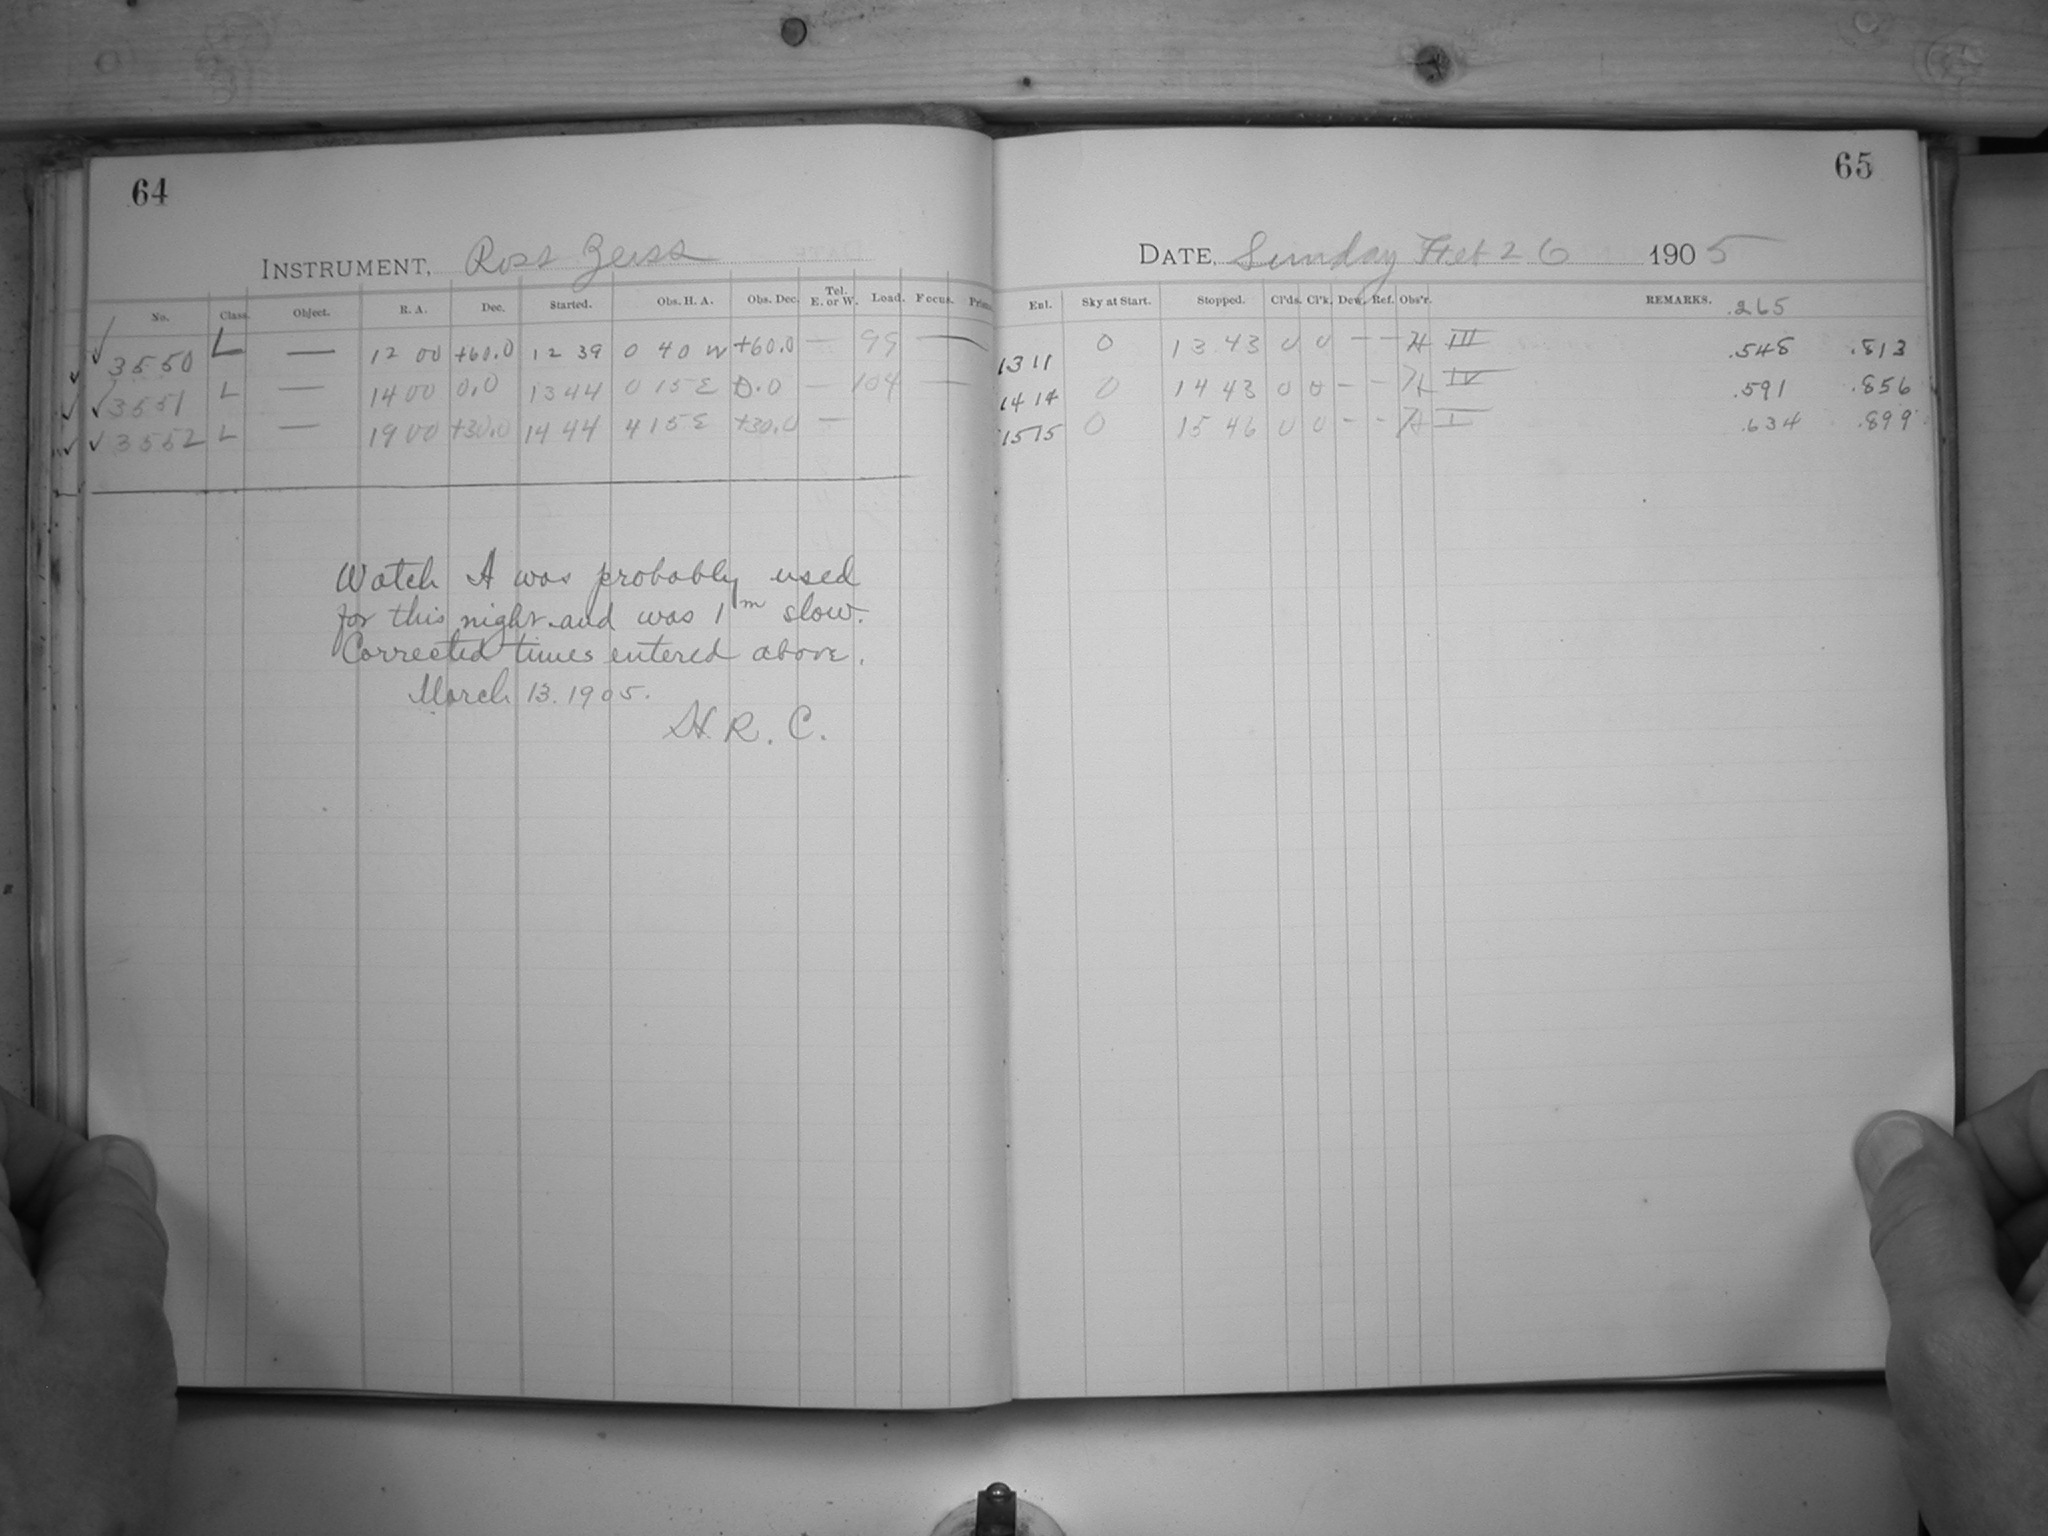 64
INSTRUMENT, Ross Zeiss
No. Class. Object. R. A. Dec. Started. Obs. H. A. Obs. Dec. Tel. E. or W. Load. Focus.
3550 L — 12 00 +60.0 12 39 0 40 W +60.0 — 99 —
3551 L — 14 00 0.0 13 44 0 15 E 0.0 — 104 —
3552 L — 19 00 +30.0 14 44 4 15 E +30.0 —
Watch A was probably used
for this night and was 1m slow.
Corrected times entered above.
March 13. 1905.
H. R. C.
65
DATE, Sunday Feb 26 1905
Enl. Sky at Start. Stopped. Cl'ds. Cl'k. Dew. Ref. Obs'r. REMARKS. .265
13 11 0 13 43 0 0 — — H III .548 .813
14 14 0 14 43 0 0 — — H IV .591 .856
15 15 0 15 46 0 0 — — H I .634 .899